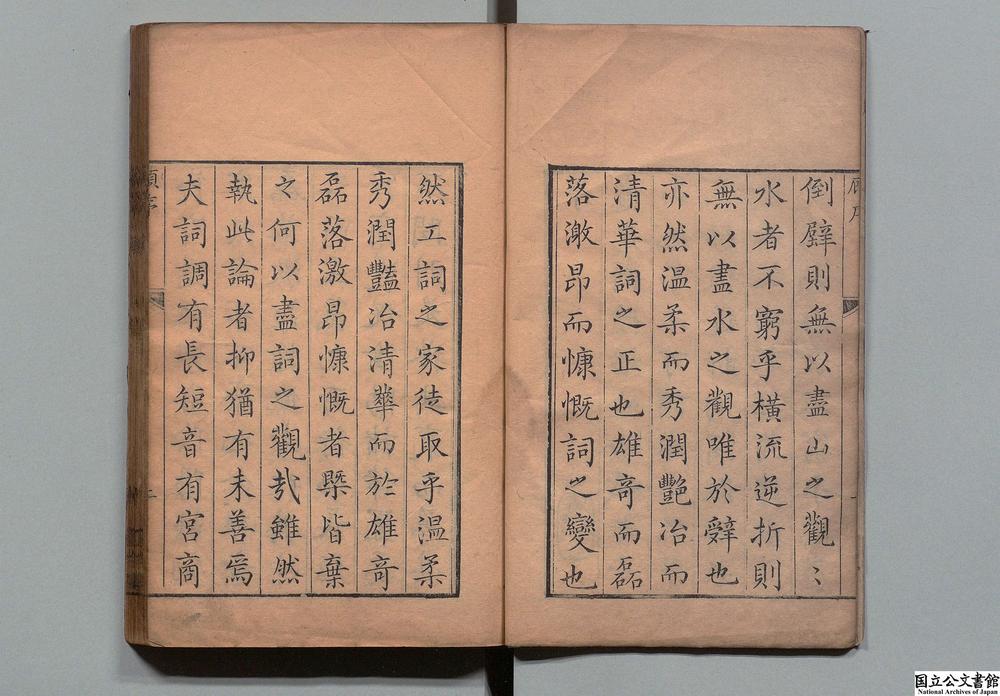 倒壁則無以盡山之觀〻
水者不窮乎橫流逆折則
無以盡水之觀唯於辭也
亦然温柔而秀潤艷冶而
清華詞之正也雄奇而磊
落激昂而慷慨詞之變也
然工詞之家徒取乎温柔
秀潤豔冶清華而於雄奇
磊落激昂慷慨者槩皆棄
之何以盡詞之觀㢤雖然
執此論者抑猶有未善焉
夫詞調有長短音有宮商
国立公文書館
National Archives of Japan